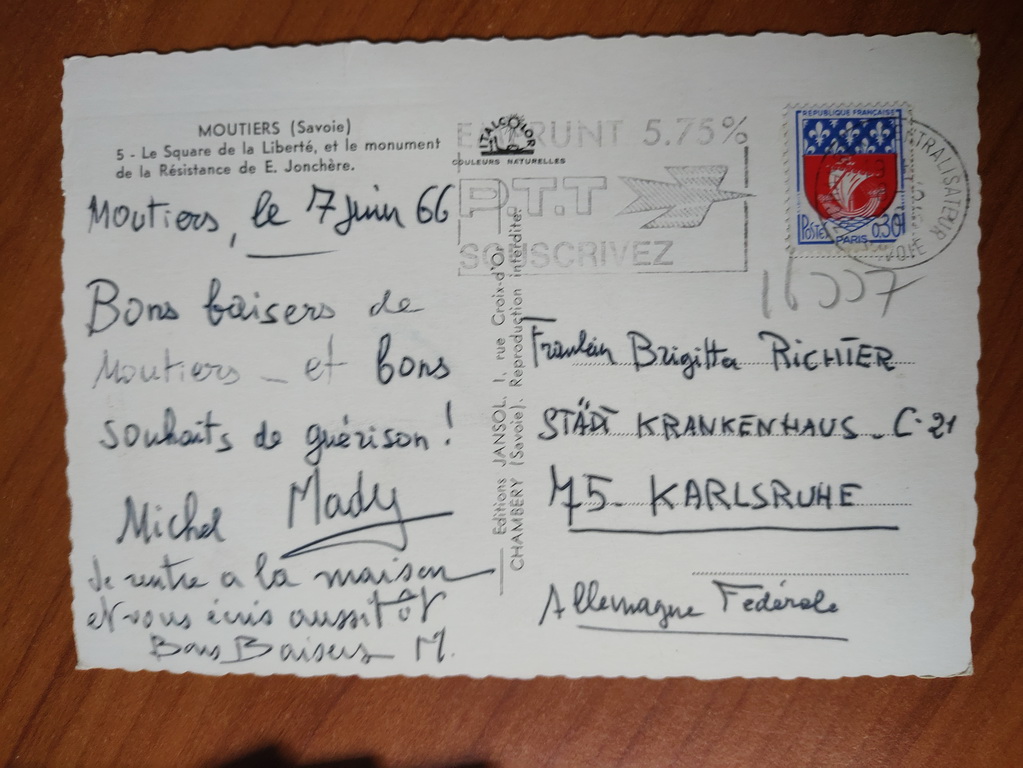 MOUTIERS (Savoie)
5 - Le Square de la Liberté, et le monument
de la Résistance de E. Jonchère.
Moutiers, le 7 juin 66
Bons baisers de
Moutiers - et bons
souhaits de guérison !
Michel Mady
Je rentre a la maison
et vous écris aussitôt
Bons Baisers M.
ITALCOLOR
COULEURS NATURELLES
EMPRUNT 5.75%
P.T.T
SOUSCRIVEZ
Editions JANSOL, 1, rue Croix-d'Or
CHAMBÉRY (Savoie). Reproduction interdite.
REPUBLIQUE FRANÇAISE
POSTES 0,30
PARIS
CENTRALISATEUR
SAVOIE
16007
Fraulein Brigitta RICHTER
STÄDT KRANKENHAUS - C.21
75 - KARLSRUHE
Allemagne Fédérale